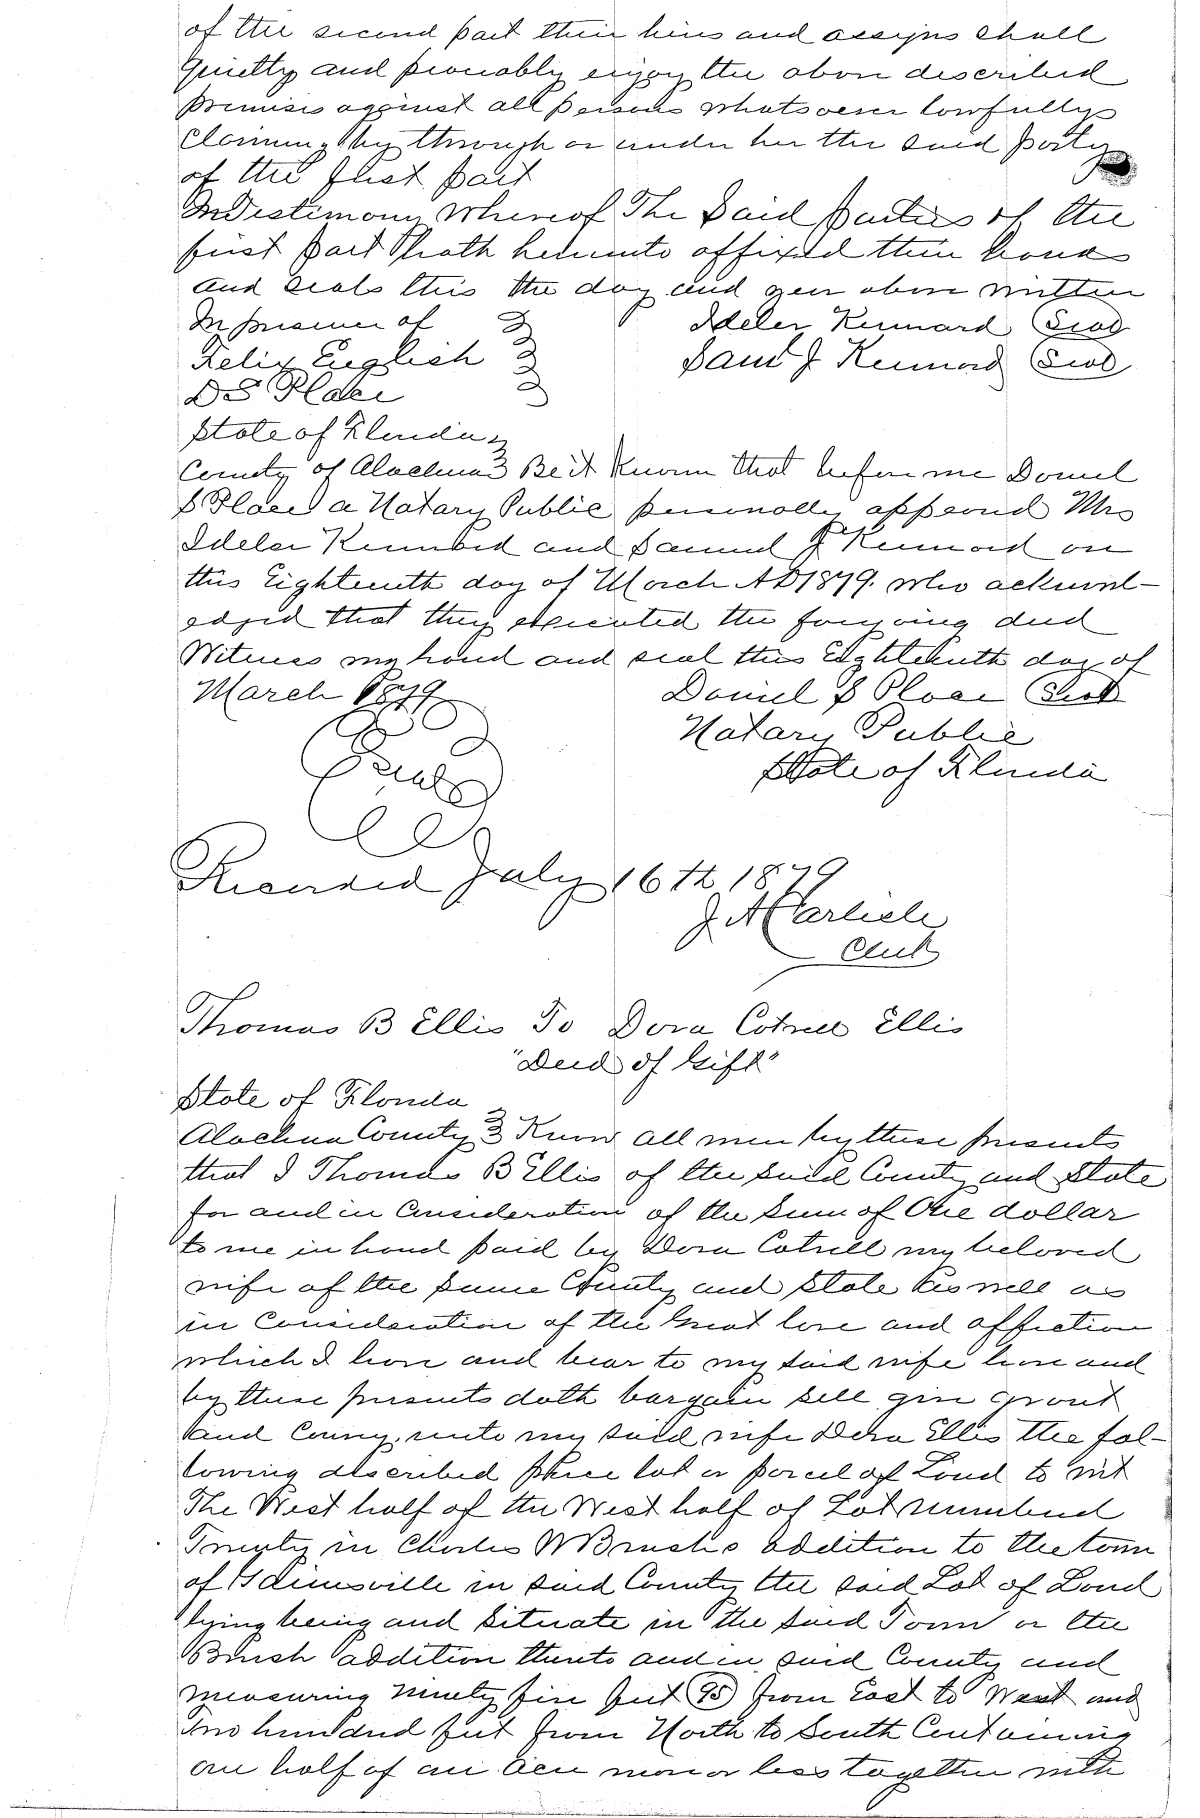 of the second part their heirs and assigns shall
Quietly and peaceably enjoy the above described
premises against all persons whatsoever lawfully
claiming by through or under her the said party
of the first part
In Testimony Whereof The Said parties of the
first part hath hereunto affixed their hands
and seals this the day and year above written
In presence of
Idelea Kennard (Seal)
Felix English
Saml J Kennard (Seal)
D S Place
State of Florida
County of Alachua Be it Known that before me Daniel
S Place a Notary Public personally appeared Mrs
Idelea Kennard and Samuel J Kennard on
this Eighteenth day of March AD 1879. who acknowl-
edged that they executed the foregoing deed
Witness my hand and seal this Eighteenth day of
March 1879
Daniel S Place (Seal)
Notary Public
State of Florida
Seal
Recorded July 16th 1879
J A Carlisle
Clerk
Thomas B Ellis To Dora Cotrell Ellis
"Deed of Gift"
State of Florida
Alachua County Know all men by these presents
that I Thomas B Ellis of the said County and State
for and in Consideration of the Sum of One dollar
to me in hand paid by Dora Cotrell my beloved
wife of the same County and State As well as
in Consideration of the Great love and affection
which I have and bear to my said wife have and
by these presents doth bargain sell give grant
and Convey unto my said wife Dora Ellis the fol-
lowing described piece lot or parcel of Land to wit
The West half of the West half of Lot numbered
Twenty in Charles W Brushs addition to the town
of Gainesville in said County the said Lot of Land
lying being and Situate in the said Town or the
Brush addition thereto and in said County and
measuring Ninety five feet (95) from East to West and
Two hundred feet from North to South Containing
one half of an Acre more or less together with